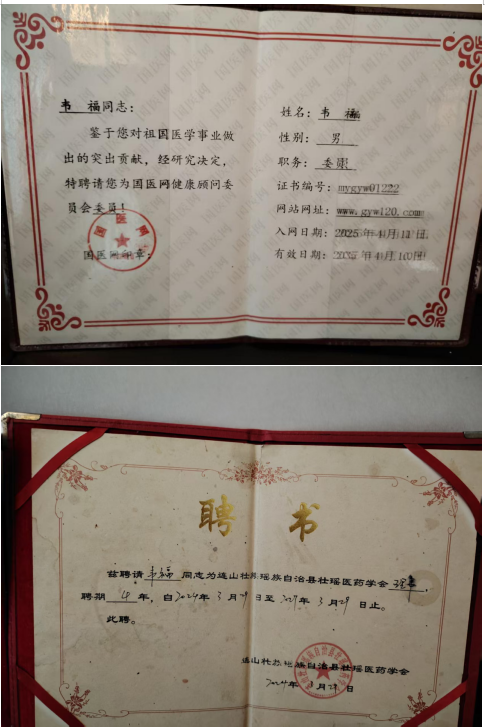 韦 福同志：
鉴于您对祖国医学事业做
出的突出贡献，经研究决定，
特聘请您为国医网健康顾问委
员会委员！
国医网
国医网 章：
姓名：韦 福
性别：男
职务：委
证书编号：mygyw01222
网站网址：www.gyw120.com
入网日期：2025年4月11日
有效日期：年4月10日
聘 书
兹聘请 韦福 同志为连山壮族瑶族自治县壮瑶医药学会 理事，
聘期 4 年，自2024年 3 月 29 日至 年 3 月 29 日止。
此聘。
连山壮族瑶族自治县壮瑶医药学会
2024年 3 月 29 日